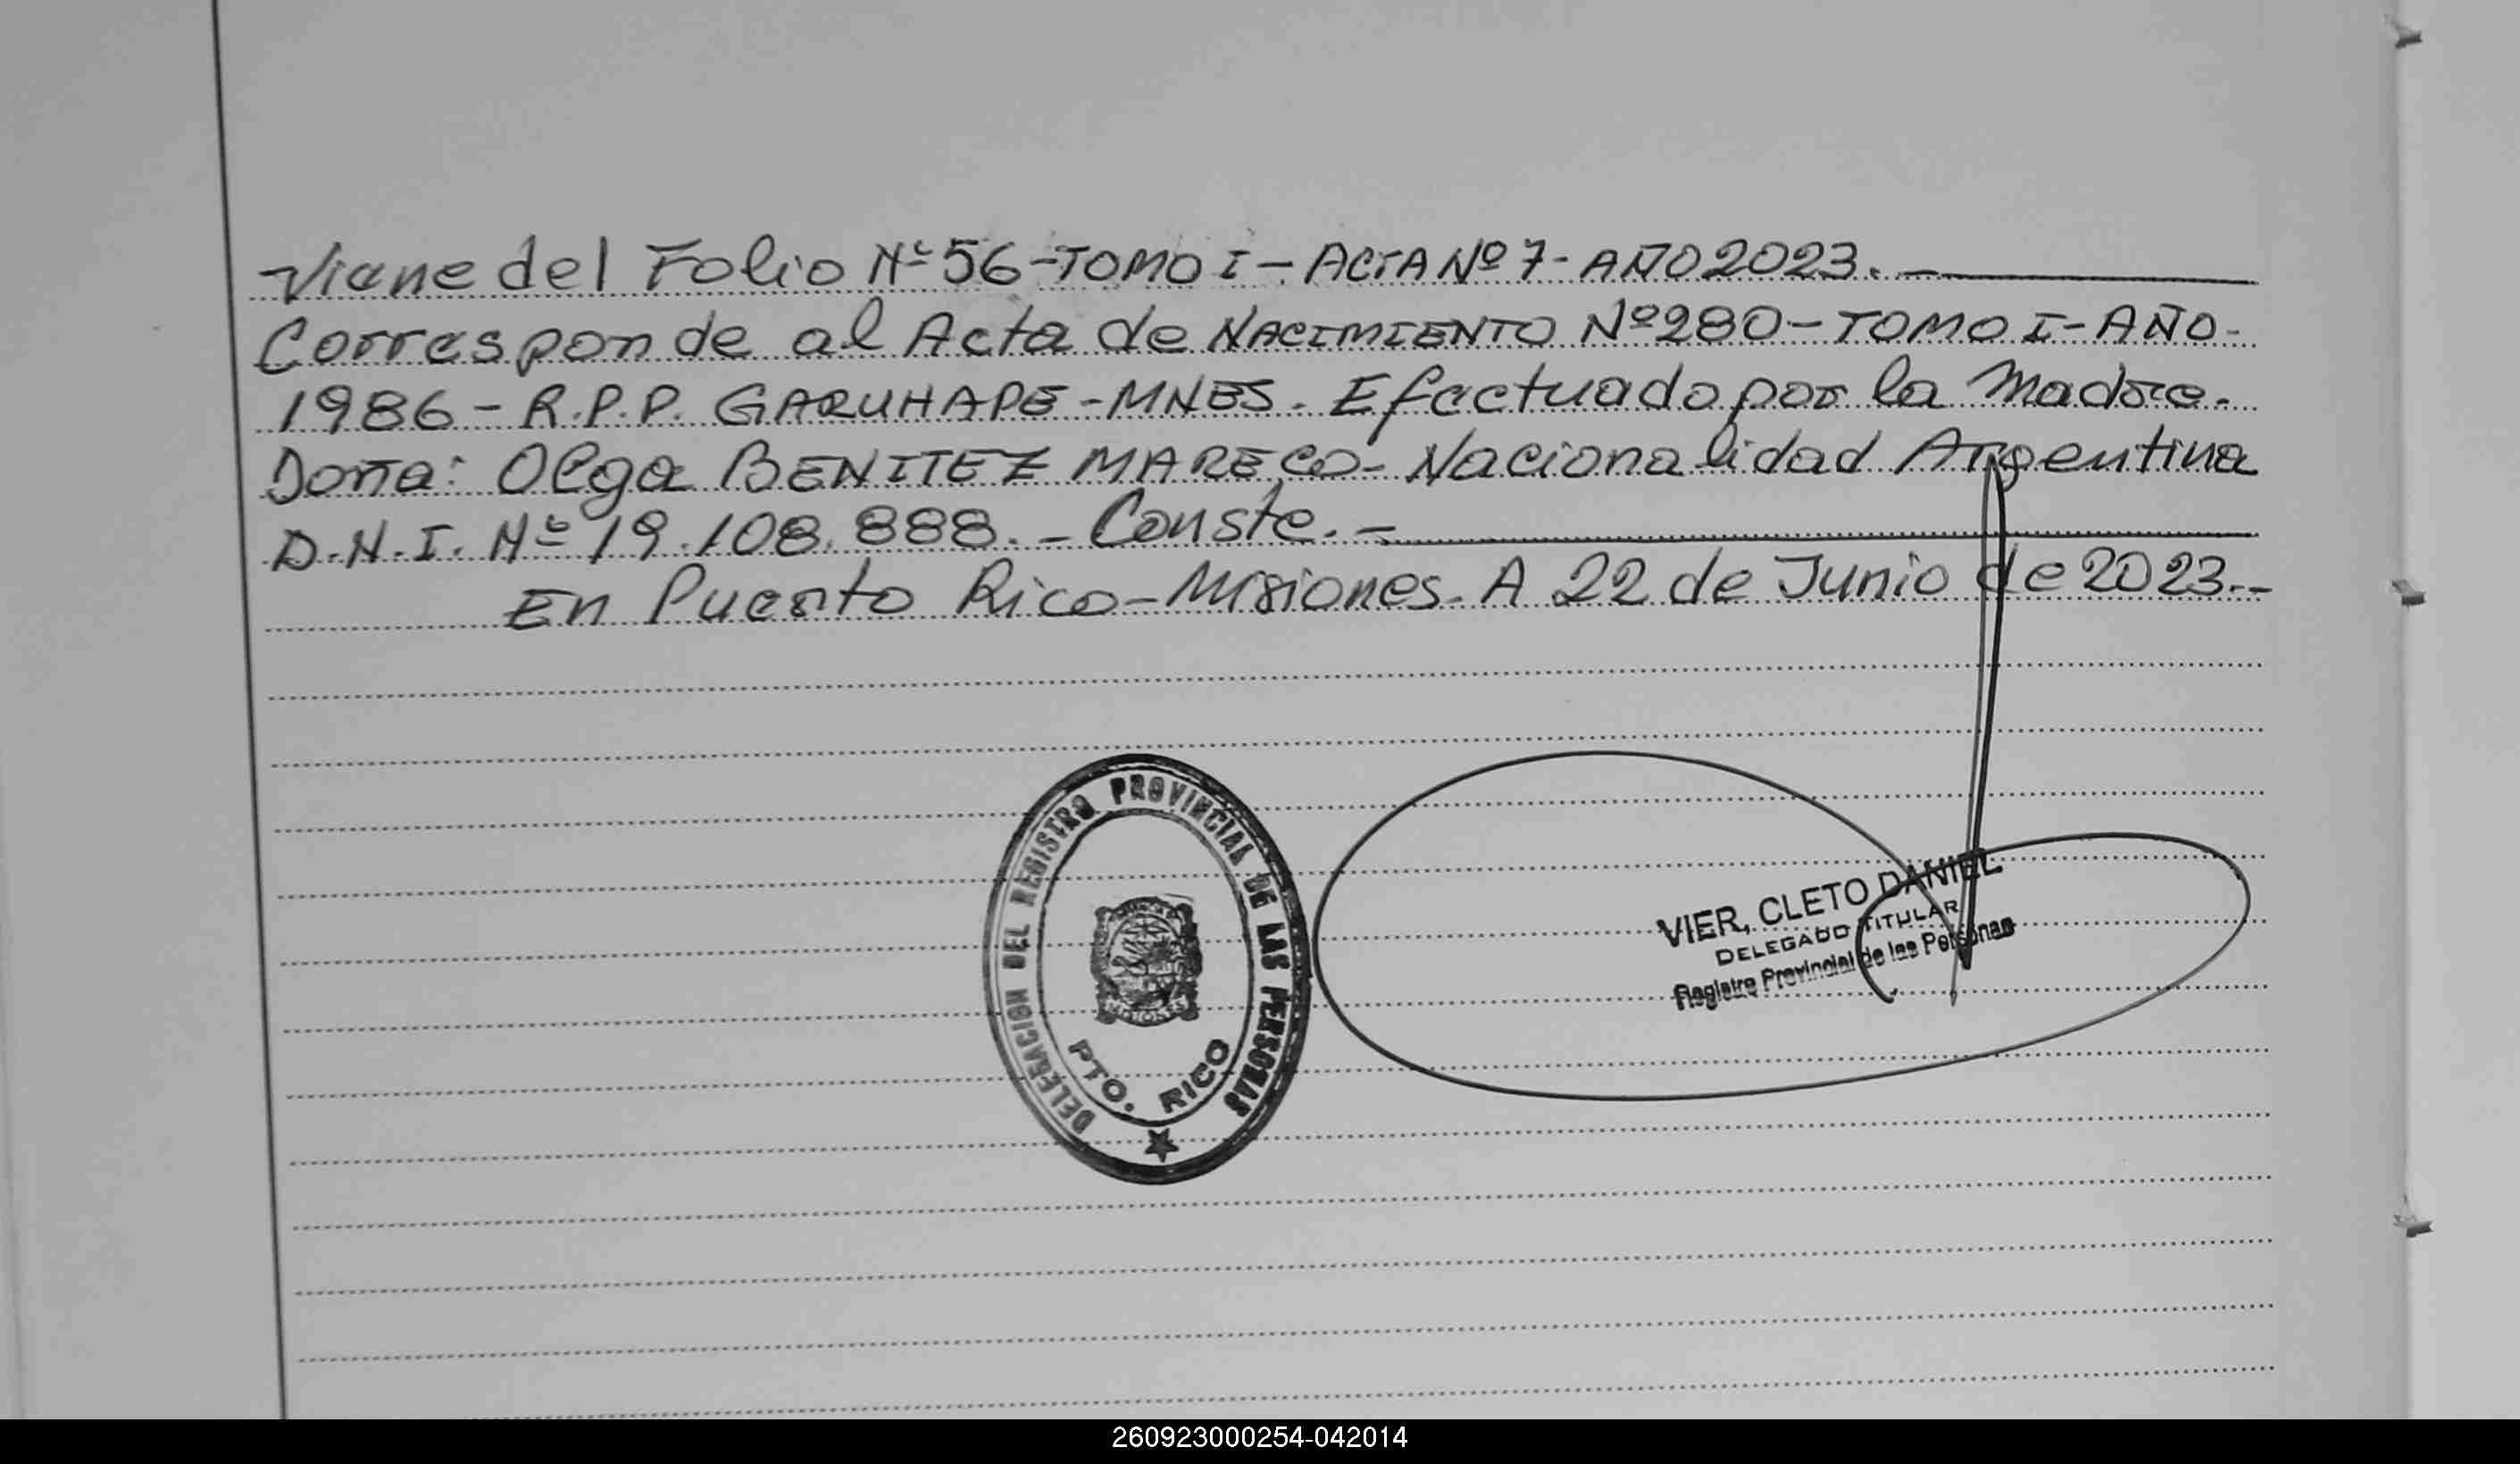 Viene del Folio Nº 56-TOMO I - ACTA Nº 7- AÑO 2023. -
Corresponde al Acta de NACIMIENTO Nº 280 - TOMO I - AÑO-
1986 - R.P.P. GARUHAPE - MNES. Efectuado por la Madre.
Doña: Olga BENITEZ MARECO - Nacionalidad Argentina
D.N.I. Nº 19.108.888. - Conste. -
En Puerto Rico - Misiones. A 22 de Junio de 2023.-
DELEGACION DEL REGISTRO PROVINCIAL DE LAS PERSONAS
PTO. RICO
VIER, CLETO DANIEL
DELEGADO TITULAR
Registro Provincial de las Personas
260923000254-042014